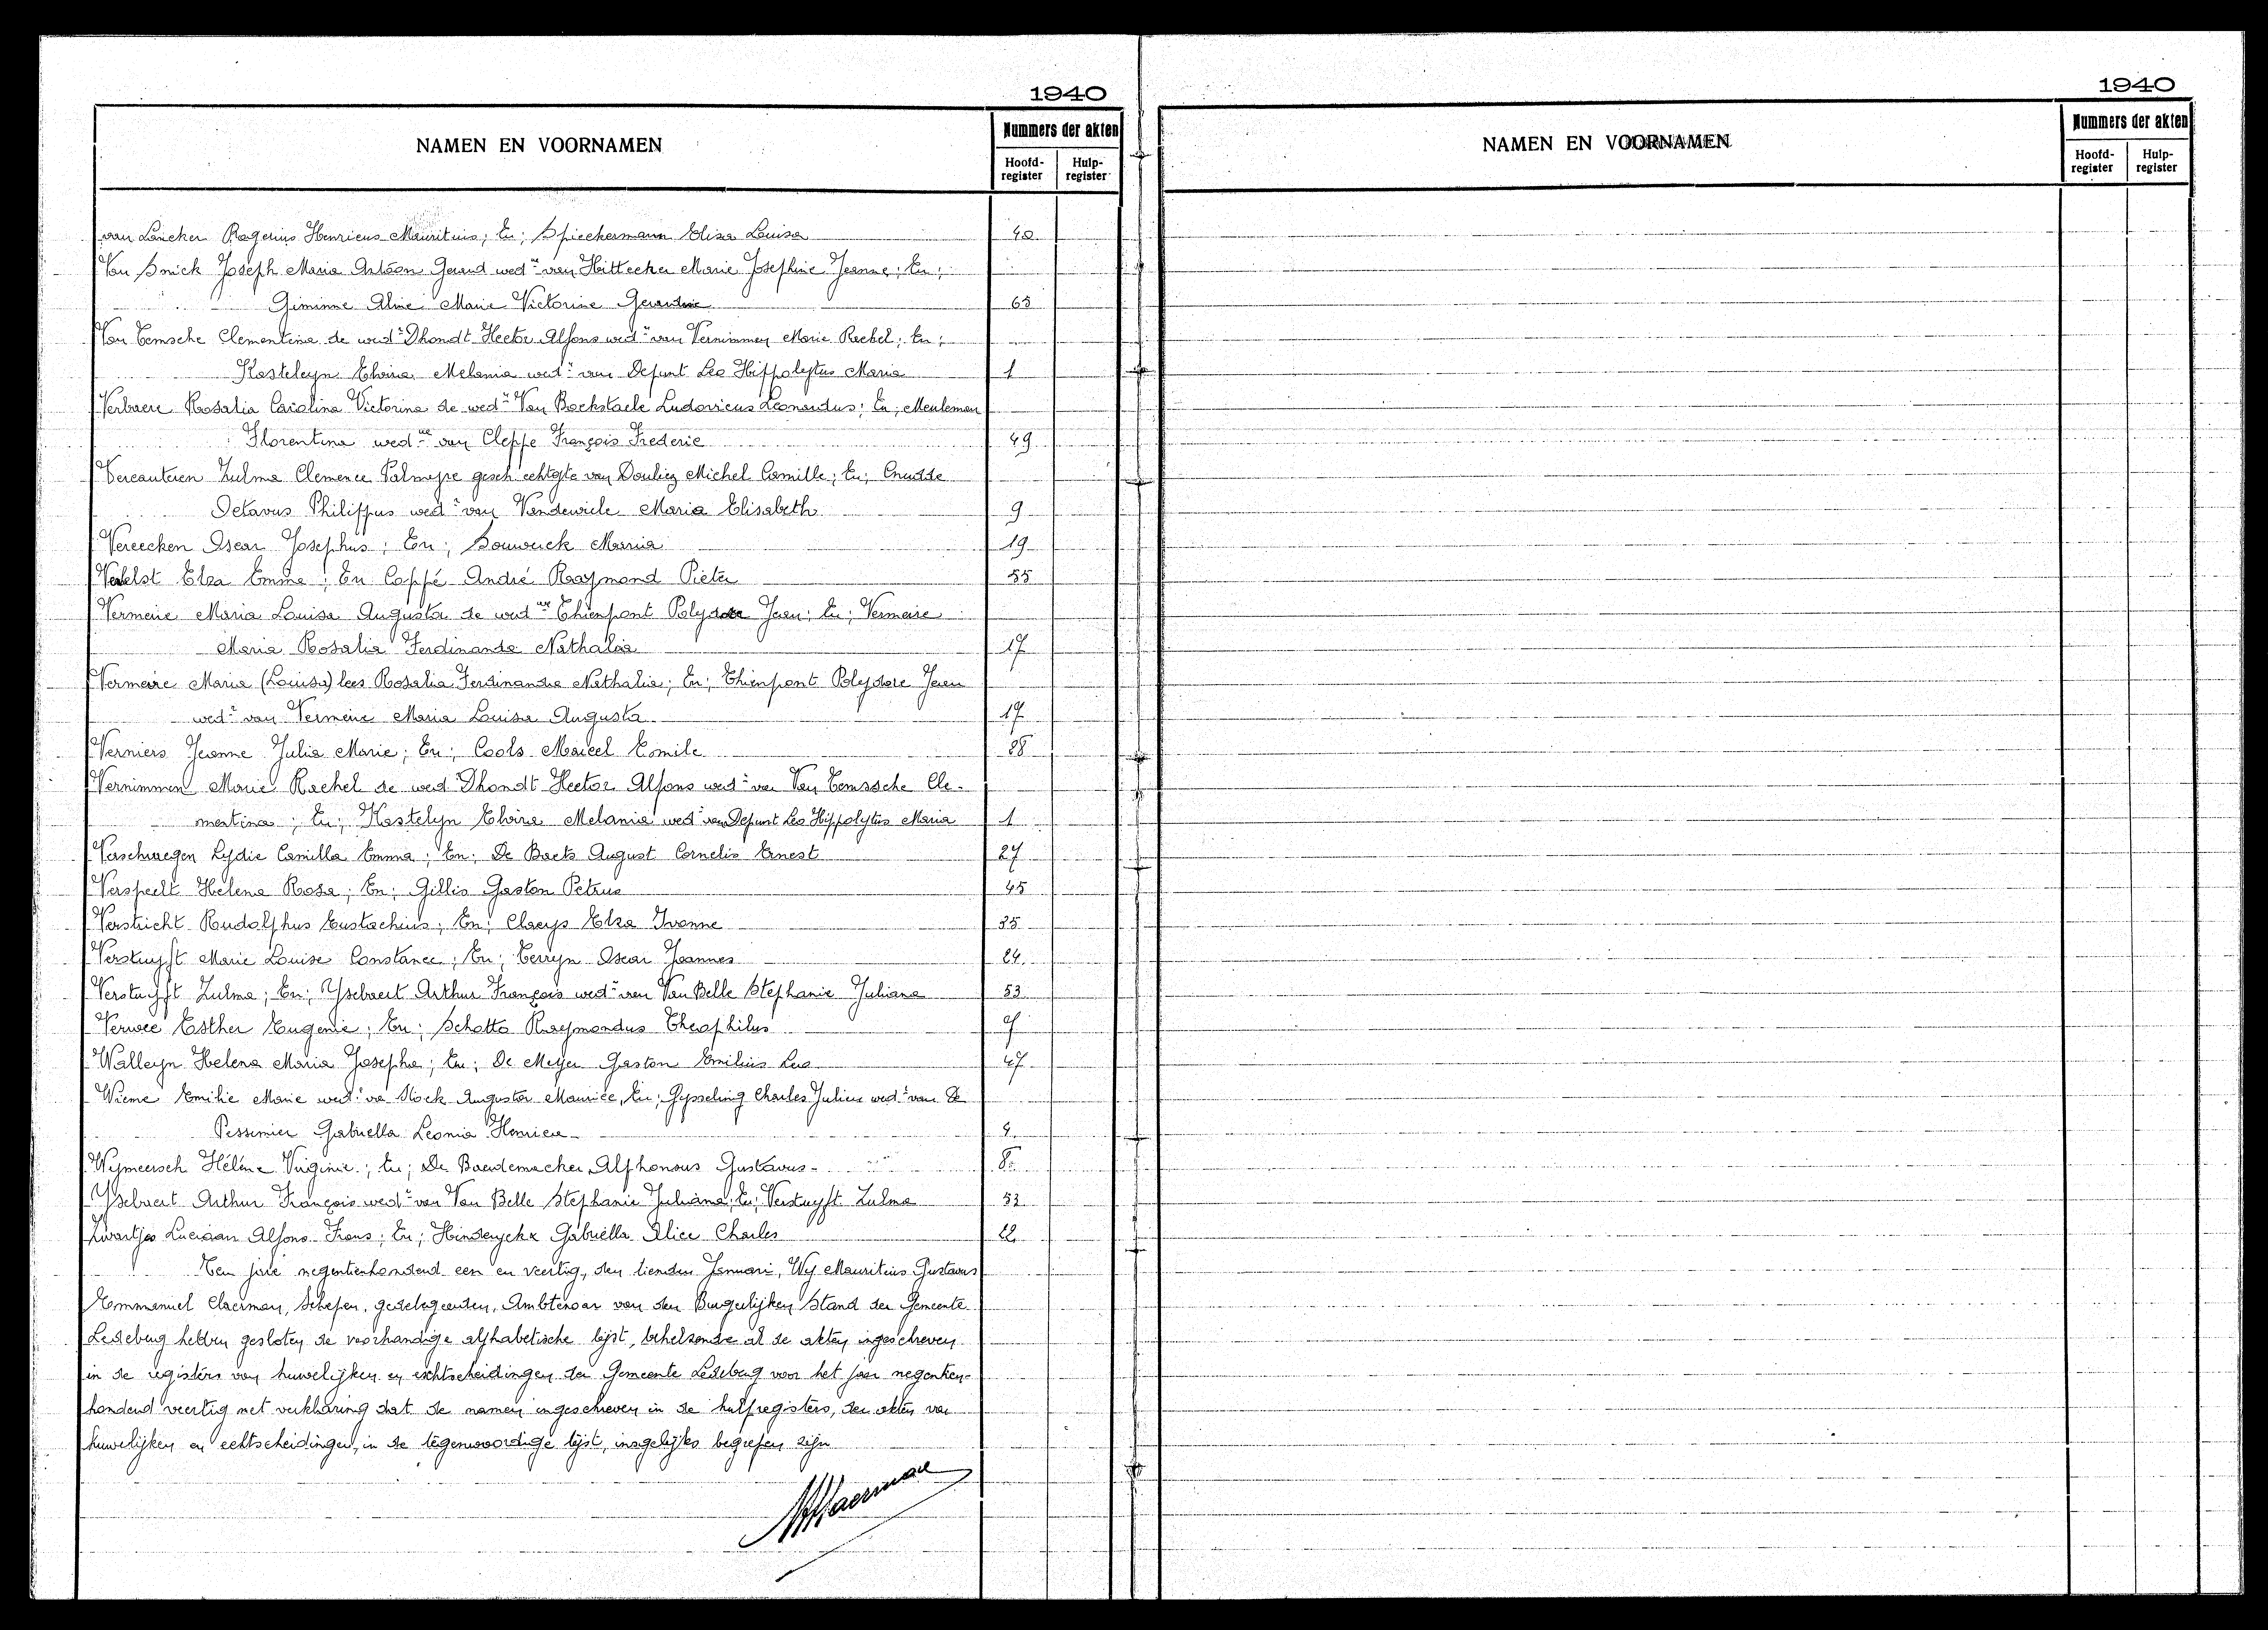 1940
NAMEN EN VOORNAMEN
Nummers der akten
Hoofd-register
Hulp-register
van Lancker Rogerius Henricus Mauritius; En; Spieckermann Elisa Louisa 40
Van Snick Joseph Maria Gerard wedr van Hittecker Marie Josephine Jeanne; En;
Giminne Aline Marie Victorine 65
Van Temsche Clementina de wedr Dhondt Hector Alfons wedr van Vernimmen Marie Rachel; En;
Kasteleyn Elvira Melania wede van Depunt Leo Hippolytus Maria 1
Verbaere Rosalia Carolina Victorina de wedr Van Bockstaele Ludovicus Leonardus; En; Meuleman
Florentina wedue van Cleppe François Frederic 49
Vercauteren Zulma Clemence Palmyre gesch echtgte van Douliez Michel Camille; En; Cnudde
Octavus Philippus wedr van Vandewiele Maria Elisabeth 9
Vereecken Oscar Josephus; En; Bouwerck Maria 19
Verelst Elza Emma; En Coppé André Raymond Pieter 55
Vermeire Maria Louisa Augusta de wedr Thienpont Polydore Jean; En; Vermeire
Maria Rosalia Ferdinanda Nathalia 17
Vermeire Maria (Louisa) lees Rosalia Ferdinanda Nathalia; En; Thienpont Polydore Jean
wedr van Vermeire Maria Louisa Augusta 17
Verniers Jeanne Julia Marie; En; Cools Marcel Emile 88
Vernimmen Marie Rachel de wedr Dhondt Hector Alfons wedr van Van Temssche Cle-
mentina; En; Kastelyn Elvira Melania wede van Depunt Leo Hippolytus Maria 1
Verschraegen Lydie Camilla Emma; En; De Baets August Cornelis Ernest 27
Verspeelt Helena Rosa; En; Gillis Gaston Petrus 45
Verstricht Rudolphus Eustachius; En; Claeys Elza Ivonne 35
Verstuyft Marie Louise Constance; En; Terryn Oscar Joannes 24
Verstuyft Zulma; En; Ysebaert Arthur François wedr van Van Belle Stephanie Juliana 53
Verwee Esther Eugenie; En; Schotte Raymondus Theophilus 7
Walleyn Helena Maria Josepha; En; De Meyer Gaston Emilius Leo 47
Wieme Emilie Marie wede van Stock Augustor Maurice, En; Gysseling Charles Julien wedr van De
Pessemier Gabriella Leonia Henrica 4
Wymeersch Hélène Virginie; En; De Baerdemacker Alphonsus Gustavus 8
Ysebaert Arthur François wedr van Van Belle Stephanie Juliana; En; Verstuyft Zulma 53
Zwartjes Luciaan Alfons Frans; En; Hinderyckx Gabriella Alice Charles 22
Ten jare negentienhonderd een en veertig, den tienden Januari, Wij Mauritius Gustavus
Emmanuel Claerman, Schepen, gedelegeerden, Ambtenaar van den Burgerlijken Stand der Gemeente
Ledeberg hebben gesloten de voorhandige alphabetische lijst, behelzende al de akten ingeschreven
in de registers van huwelijken en echtscheidingen der Gemeente Ledeberg voor het jaar negentien-
honderd veertig met verklaring dat de namen ingeschreven in de hulpregisters, der akten van
huwelijken en echtscheidingen, in de tegenwoordige lijst, insgelijks begrepen zijn
1940
NAMEN EN VOORNAMEN
Nummers der akten
Hoofd-register
Hulp-register